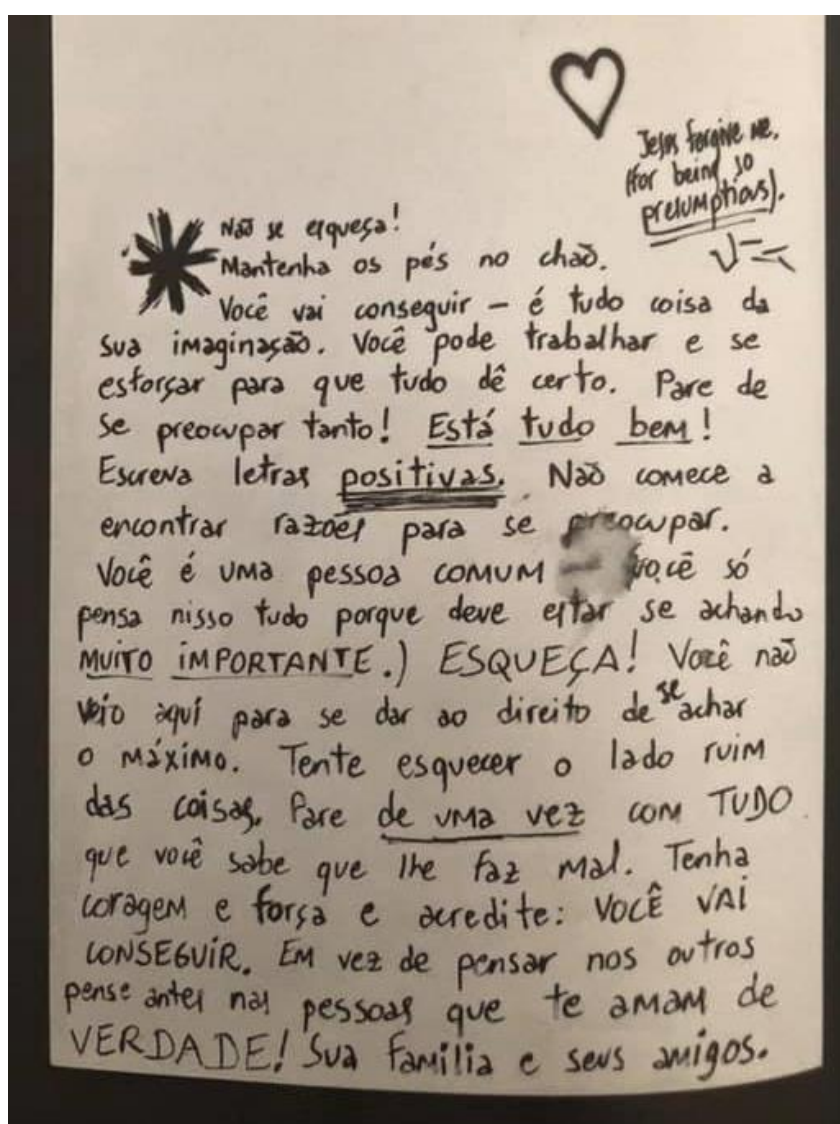 Jesus forgive me.
(for being so
presumptios).
Não se esqueça!
Mantenha os pés no chão.
Você vai conseguir – é tudo coisa da
sua imaginação. Você pode trabalhar e se
esforçar para que tudo dê certo. Pare de
se preocupar tanto! Está tudo bem!
Escreva letras positivas. Não comece a
encontrar razões para sé preocupar.
Você é uma pessoa COMUM – você só
pensa nisso tudo porque deve estar se achando
MUITO IMPORTANTE.) ESQUEÇA! Você não
veio aqui para se dar ao direito de se achar
o máximo. Tente esquecer o lado ruim
das coisas. Pare de uma vez com TUDO
que você sabe que lhe faz mal. Tenha
coragem e força e acredite: VOCÊ VAI
CONSEGUIR. Em vez de pensar nos outros
pense antes nas pessoas que te amam de
VERDADE! Sua família e seus amigos.